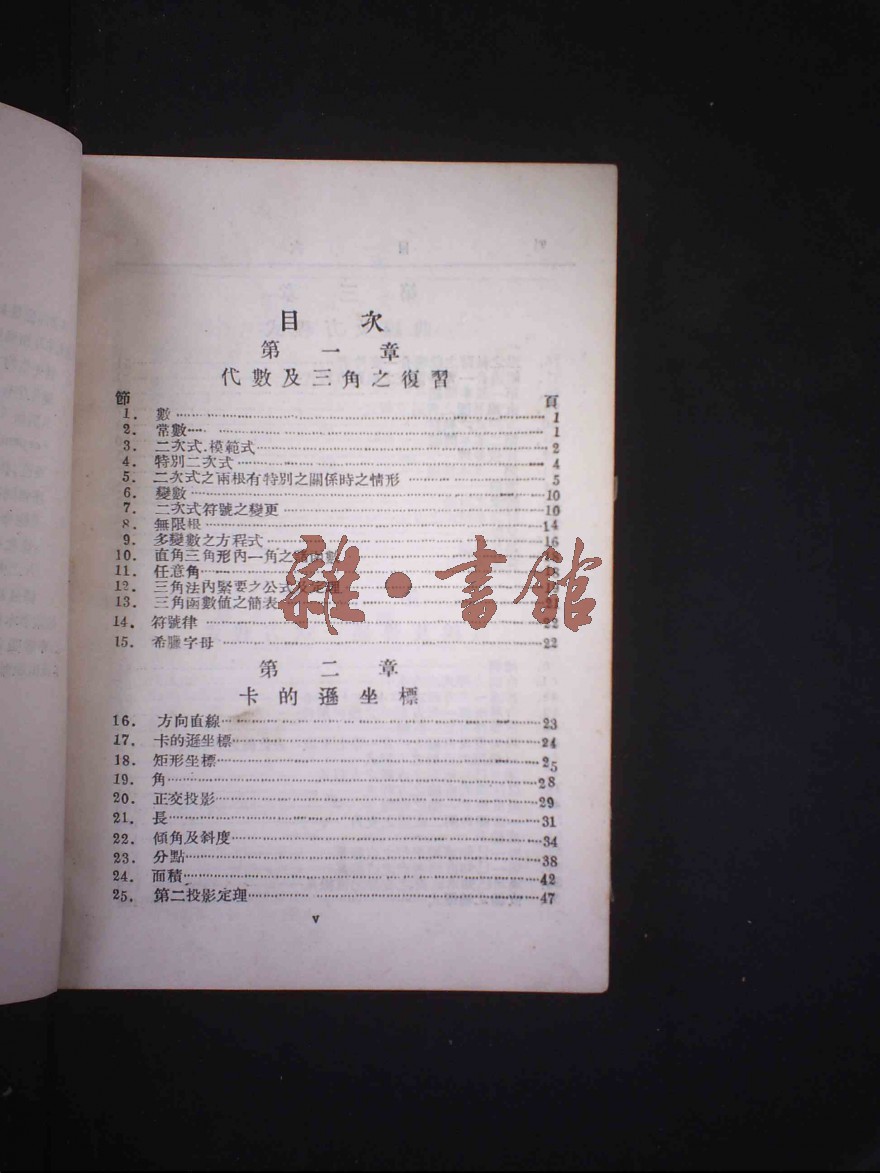 目次
第一章
代數及三角之復習
節 頁
1. 數 1
2. 常數 1
3. 二次式.模範式 2
4. 特別二次式 4
5. 二次式之兩根有特別之關係時之情形 5
6. 變數 10
7. 二次式符號之變更 10
8. 無限根 14
9. 多變數之方程式 16
10. 直角三角形內一角之 函數
11. 任意角
12. 三角法內緊要之公式及定理
13. 三角函數值之簡表 21
14. 符號律 22
15. 希臘字母 22
雜·書館
第二章
卡的遜坐標
16. 方向直線 23
17. 卡的遜坐標 24
18. 矩形坐標 25
19. 角 28
20. 正交投影 29
21. 長 31
22. 傾角及斜度 34
23. 分點 38
24. 面積 42
25. 第二投影定理 47
v